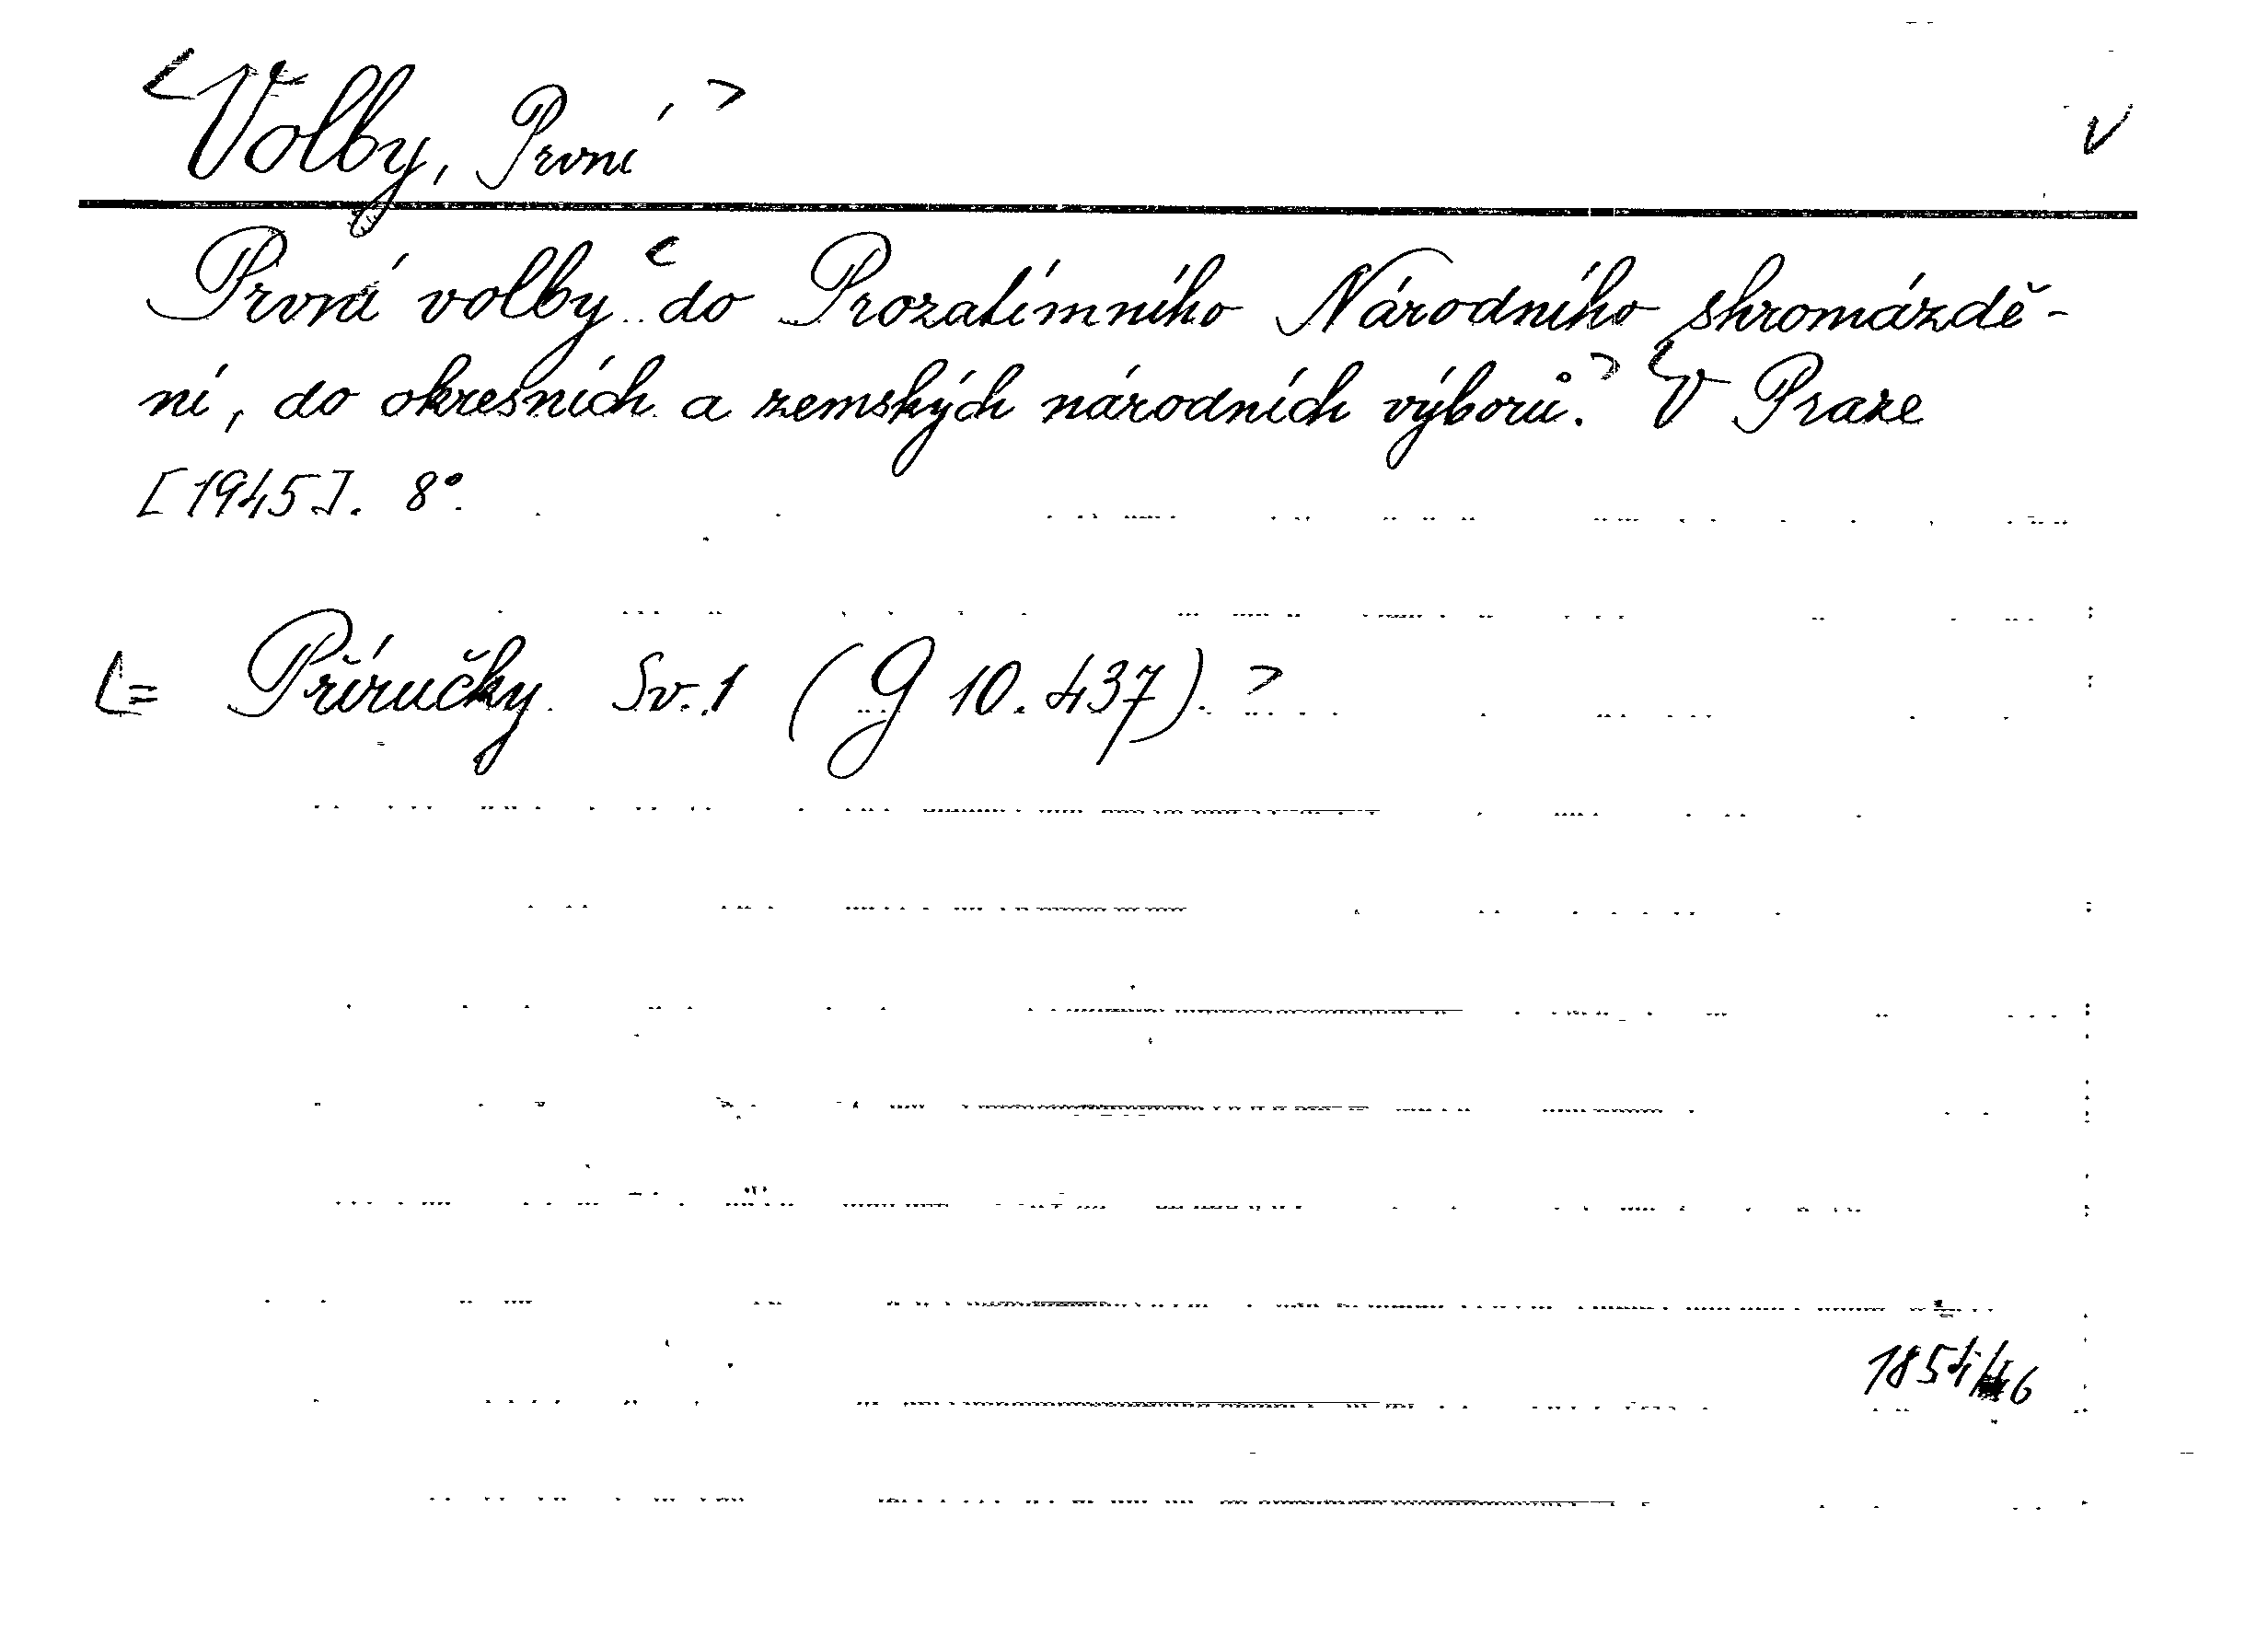 <Volby, První> V
První volby < do Prozatímního Národního shromáždě-
ní, do okresních a zemských národních výborů.> <V Praze
[1945]. 8°.
<= Příručky. Sv. 1 (G 10.437).>
1854/46